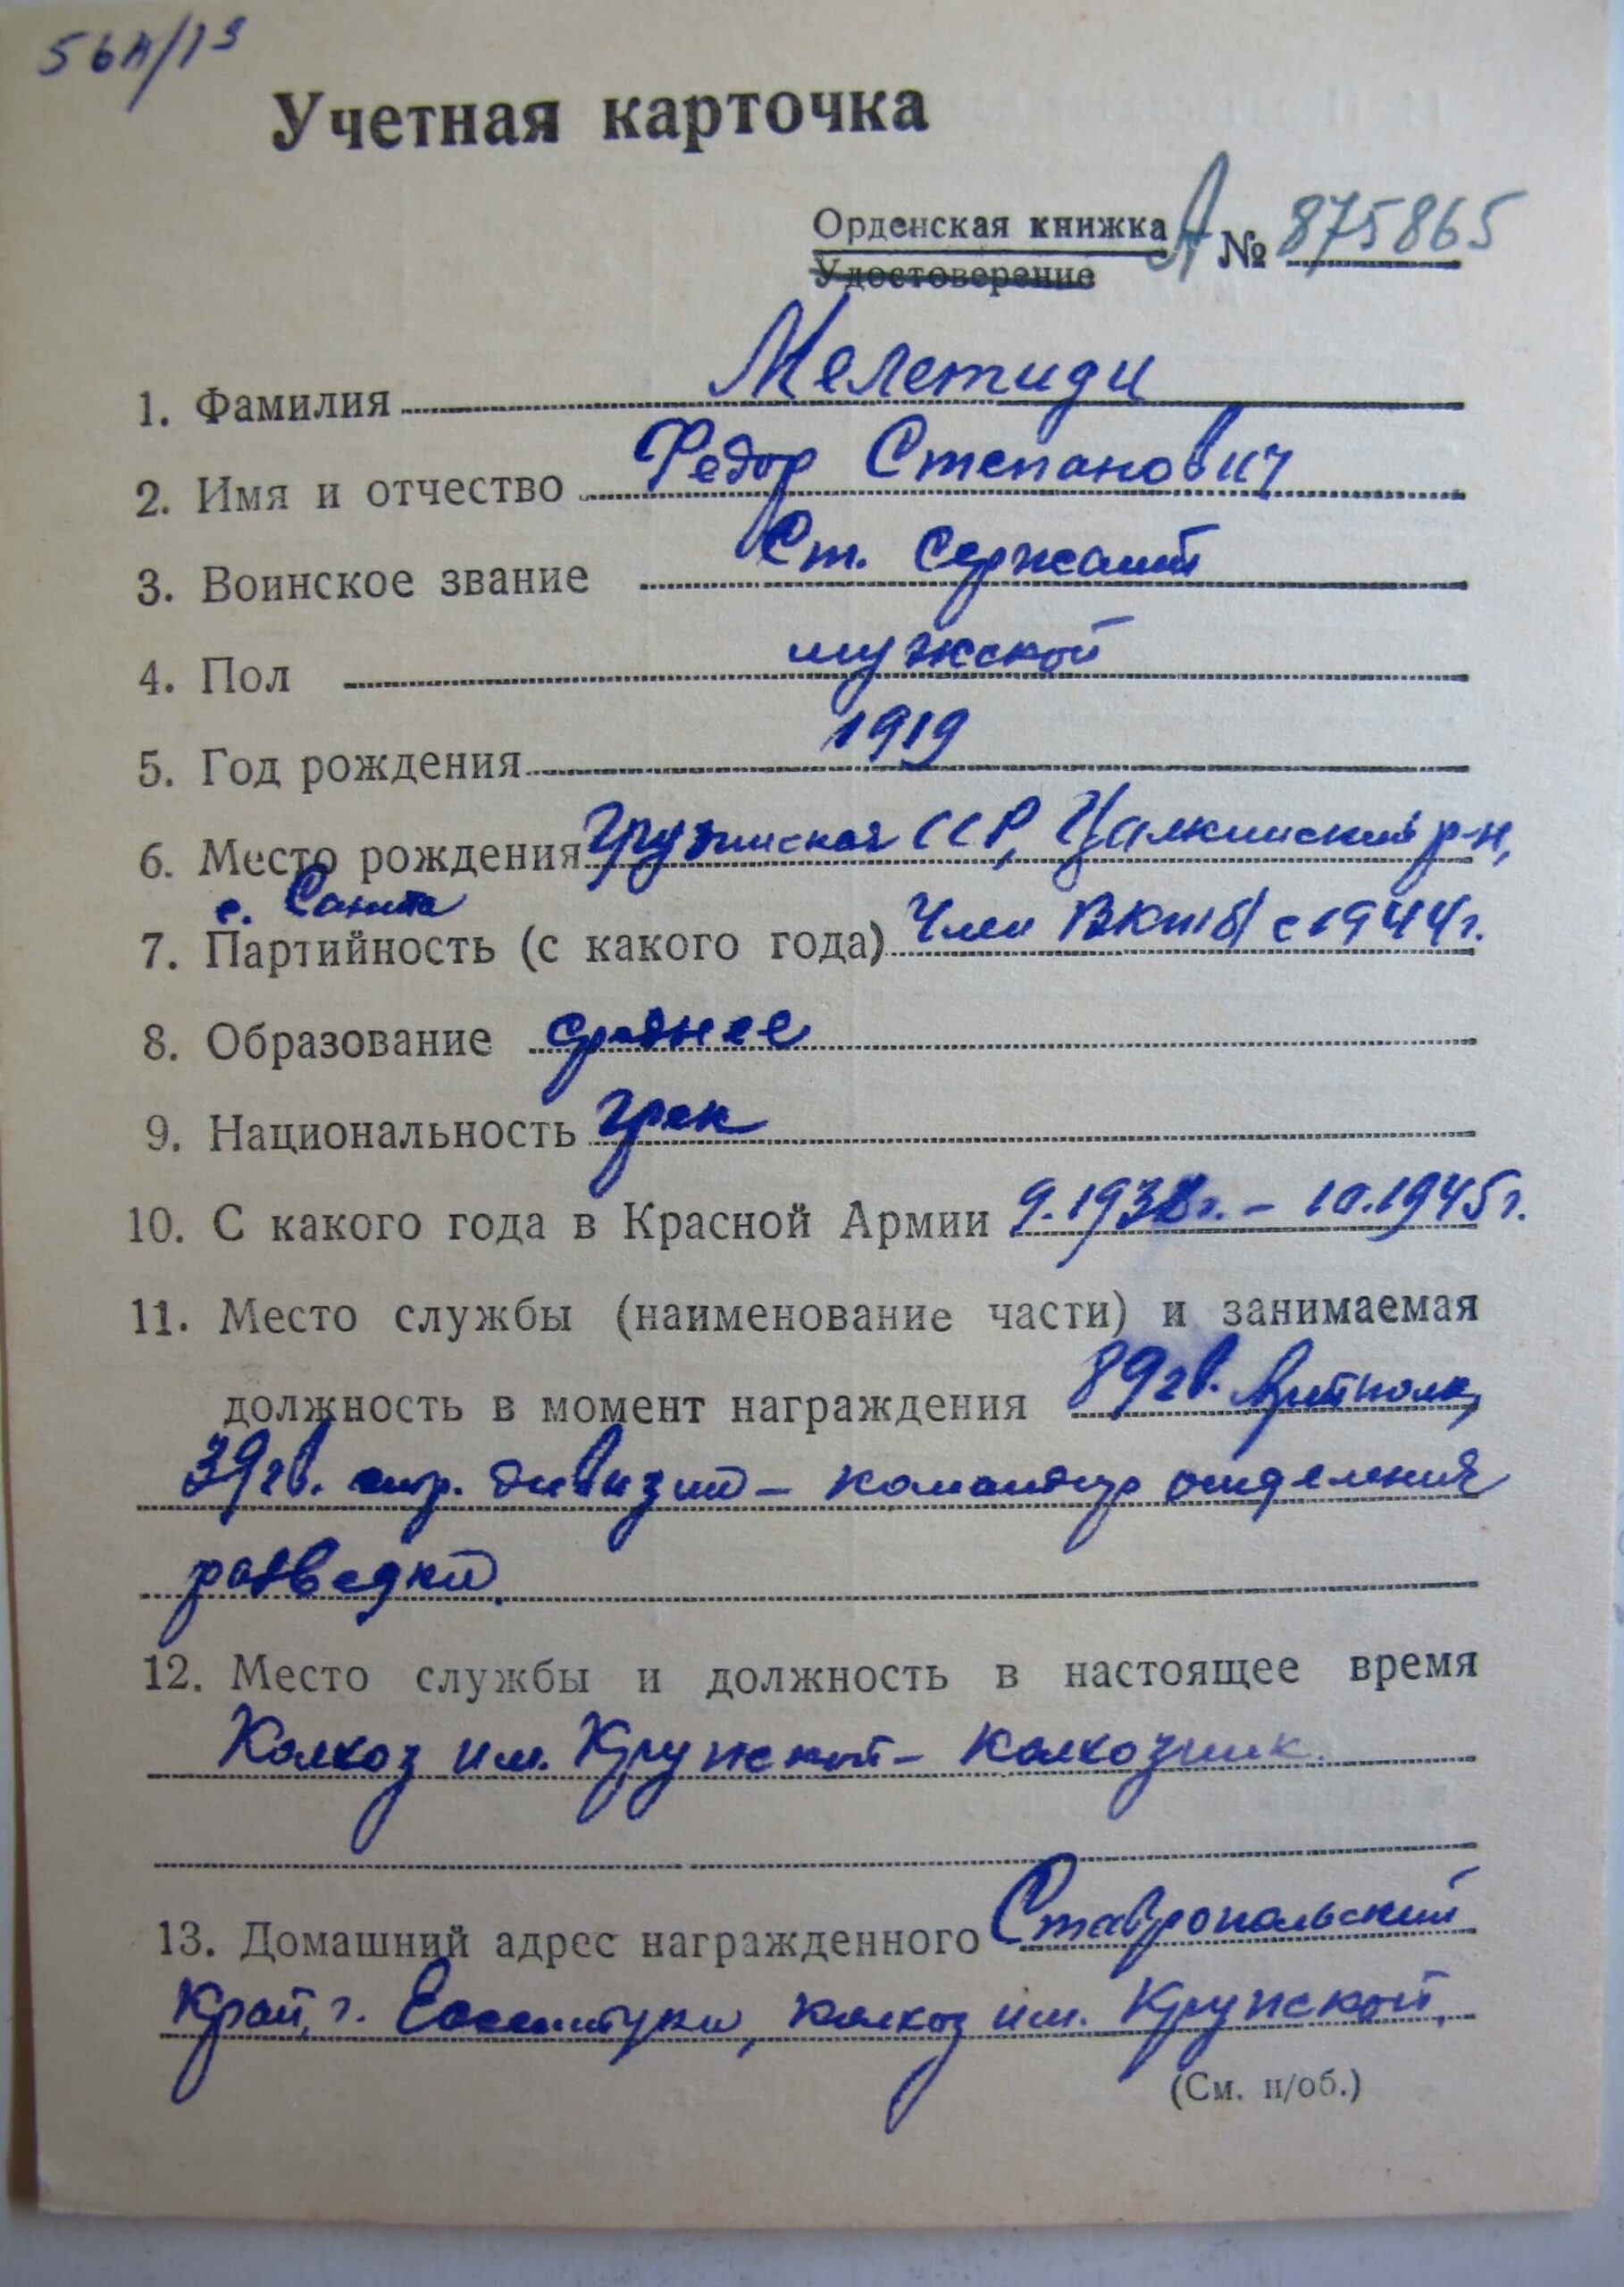 Учетная карточка
Орденская книжка А № 875865
Удостоверение
1. Фамилия Мелетиди
2. Имя и отчество Федор Степанович
3. Воинское звание Ст. Сержант
4. Пол мужской
5. Год рождения 1919
6. Место рождения Грузинская ССР, Цалкинский р-н,
с. Санта
7. Партийность (с какого года) Член ВКП(б) с 1944 г.
8. Образование среднее
9. Национальность грек
10. С какого года в Красной Армии 9.1938 г. – 10.1945 г.
11. Место службы (наименование части) и занимаемая
должность в момент награждения 89 гв. Артполк,
39 гв. стр. дивизии – командир отделения
разведки.
12. Место службы и должность в настоящее время
Колхоз им. Крупской – колхозник.
13. Домашний адрес награжденного Ставропольский
Край, г. Ессентуки, колхоз им. Крупской.
(См. н/об.)